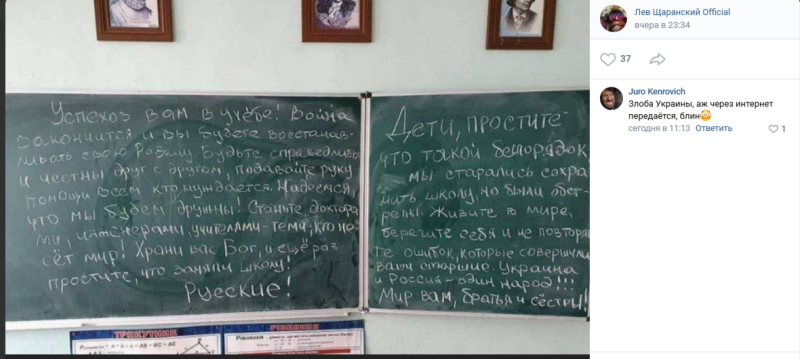 Успехов вам в учёбе! Война
закончится и вы будете восстанав-
ливать свою Родину. Будьте справедливы
и честны друг с другом, подавайте руку
помощи всем кто нуждается. Надеемся,
что мы будем дружны! Станьте доктора-
ми, инженерами, учителями - теми, кто не-
сёт мир! Храни вас Бог, и ещё раз
простите, что заняли школу!
Русские!
Дети, простите
что такой беспорядок,
мы старались сохра
нить школу, но были обст-
релы. Живите в мире,
берегите себя и не повторяй
те ошибок, которые совершили
ваши старшие. Украина
и Россия - один народ!!!
Мир вам, братья и сёстры!
ТРИКУТНИК
РІВНЯННЯ
Лев Щаранский Official
вчера в 23:34
37
Juro Kenrovich
Злоба Украины, аж через интернет
передаётся, блин😳
сегодня в 11:13 Ответить
1